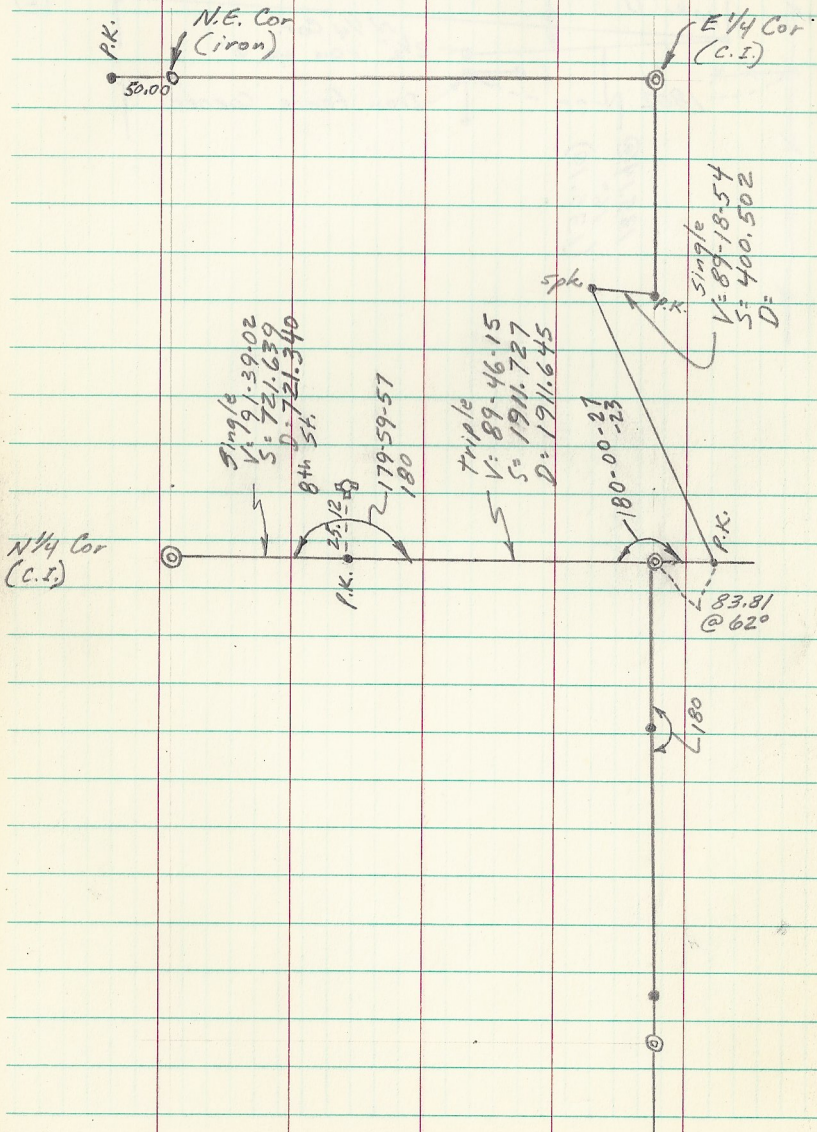 P.K.
N.E. Cor
(iron)
E 1/4 Cor
(C.I.)
50.00
Single
V= 89-18-54
S= 400.502
D=
Spk.
P.K.
Single
V= 91-39-02
S= 721.639
D= 721.340
8th St.
179-59-57
180
Triple
V= 89-46-15
S= 1911.727
D= 1911.645
180-00-27
-23
N 1/4 Cor
(C.I.)
25.12
P.K.
P.K.
83.81
@ 62°
180